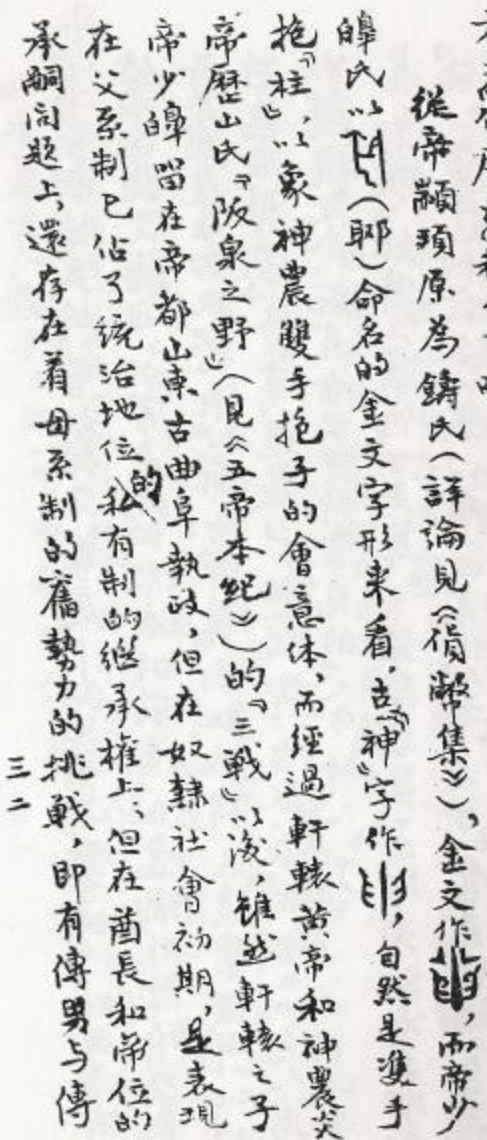 從帝顓頊原為鑄氏(詳論見《貨幣集》),金文作,而帝少
皞氏以(耶)命名的金文字形来看,古『神』字作,自然是雙手
抱『柱』,以象神農雙手抱子的會意体,而經過軒轅黃帝和神農炎
帝歷山氏『阪泉之野』(見《五帝本紀》)的『三戰』以後,雖然軒轅之子
帝少皞留在帝都山東古曲阜執政,但在奴隸社會初期,是表現
在父系制已佔了統治地位的私有制的繼承權上;但在酋長和帝位的
承嗣问题上,還存在着母系制的舊勢力的挑戰,即有傳男与傳
三二